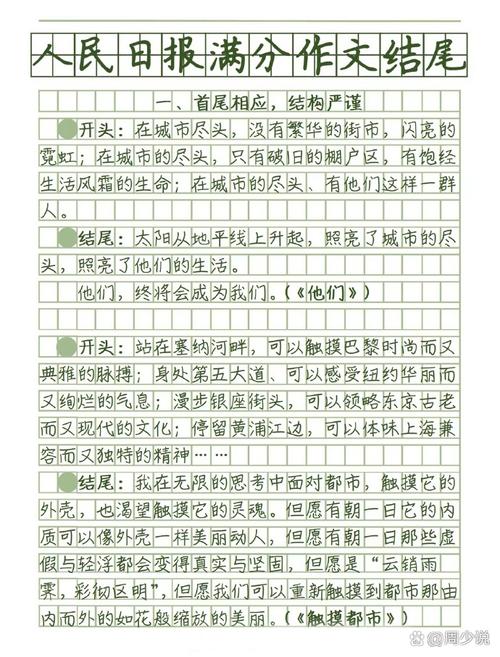 人民日报满分作文结尾
一、首尾相应,结构严谨
开头:在城市尽头,没有繁华的街市,闪亮的
霓虹;在城市的尽头,只有破旧的棚户区,有饱经
生活风霜的生命;在城市的尽头、有他们这样一群
人。
结尾:太阳从地平线上升起,照亮了城市的尽
头,照亮了他们的生活。
他们,终将会成为我们。(《他们》)
开头:站在塞纳河畔,可以触摸巴黎时尚而又
典雅的脉搏;身处第五大道、可以感受纽约华丽而
又绚烂的气息;漫步银座街头,可以领略东京古老
而又现代的文化;停留黄浦江边,可以体味上海兼
容而又独特的精神……
结尾:我在无限的思考中面对都市,触摸它的
外壳,也渴望触摸它的灵魂。但愿有朝一日它的内
质可以像外壳一样美丽动人,但愿有朝一日那些虚
假与轻浮都会变得真实与坚固,但愿是“云销雨
霁,彩彻区明”,但愿我们可以重新触摸到都市那由
内而外的如花般缩放的美丽。(《触摸都市》)
Bai百家号@周少说